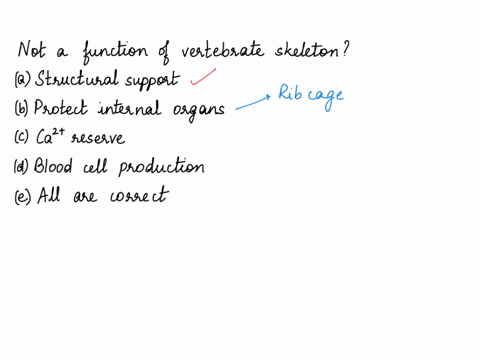 Not a function of vertebrate skeleton?
(a) Structural support ✓
(b) Protect internal organs → Rib cage
(c) Ca²⁺ reserve
(d) Blood cell production
(e) All are correct